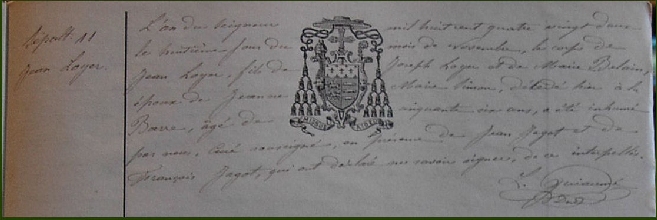 Sépult. 41
Jean Loyer.
L'an du Seigneur mil huit cent quatre vingt deux
le huitième jour du mois de Novembre, le corps de
Jean Loyer, fils de Joseph Loyer et de Marie Belain,
époux de Jeanne Marie Pinau, décédé hier à la
Barre, âgé de cinquante six ans, a été inhumé
par nous, Curé soussigné, en présence de Jean Jagot et de
François Jagot, qui ont déclaré ne savoir signer, de ce interpellés.
L.